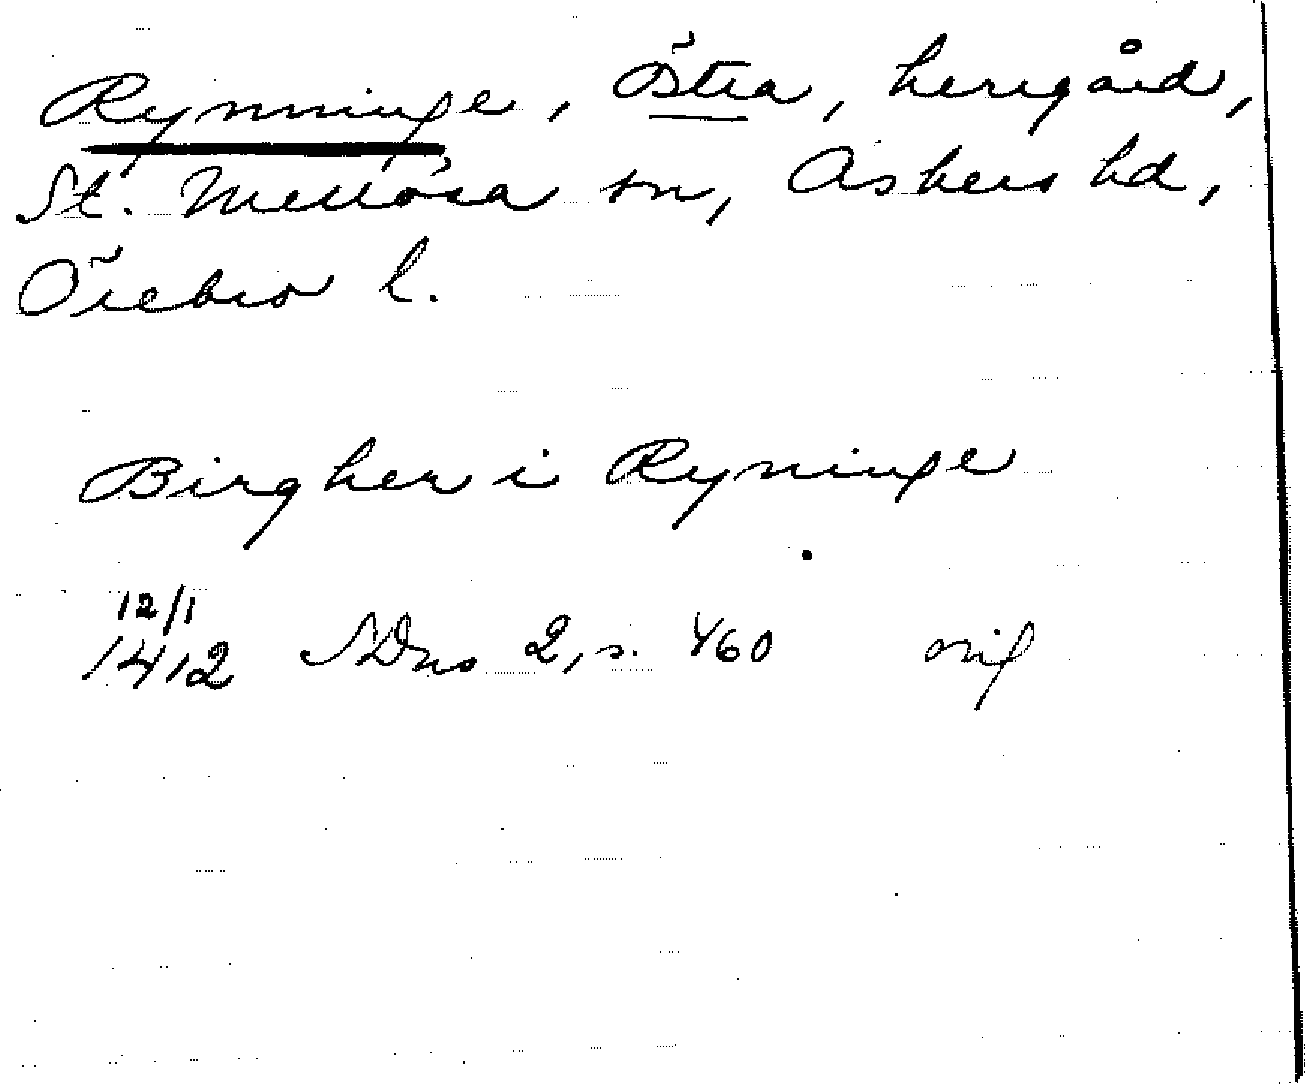 Rynninge, Östra, herrgård,
St. Mellösa sn, Askers hd,
Örebro l.
Birgher i Ryninge
12/1
1412 SDns 2, s. 460 orig